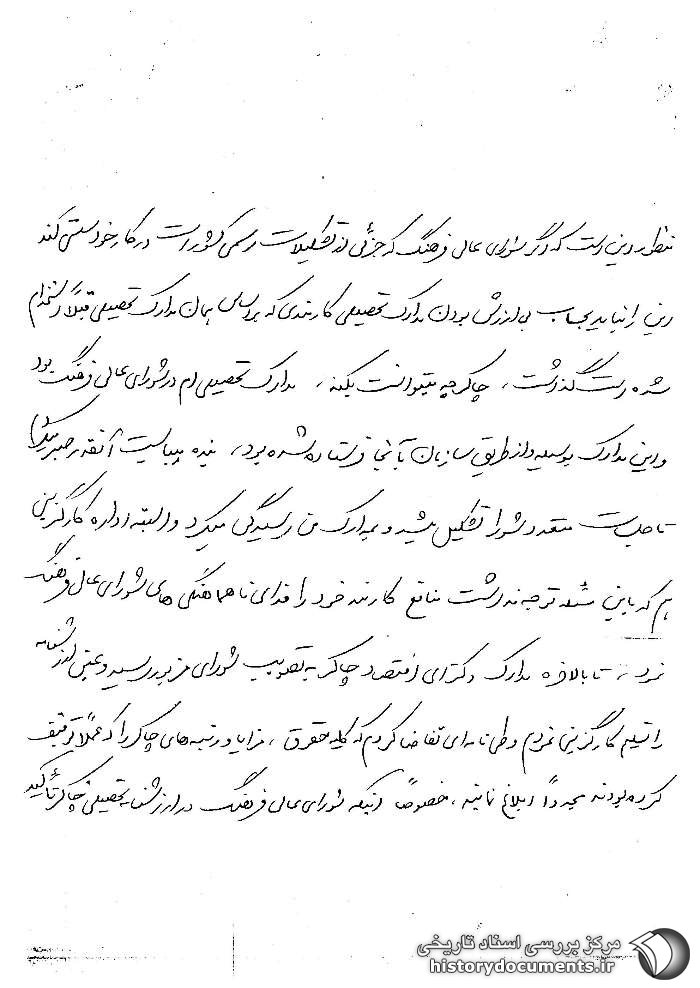 منظور این است که اگر شورای عالی فرهنگ که جزئی از تشکیلات رسمی کشور است در کار خود سستی کند
این را نباید بحساب بی ارزش بودن مدارک تحصیلی کارمندی که بر اساس همان مدارک تحصیلی قبلاً استخدام
شده است گذاشت، چاکر چه میتوانست بکند، مدارک تحصیلی ام در شورای عالی فرهنگ بود
و این مدارک بوسیله و از طریق سازمان بآنجا فرستاده شده بود، بنده میبایست آنقدر صبر میکردم
تا جلسات متعدد شورا تشکیل میشد و بمدارک من رسیدگی میکرد و البته اداره کارگزینی
هم که باین مسئله توجه نداشت منافع کارمند خود را فدای ناهماهنگی های شورای عالی فرهنگ
نمود، تا بالاخره مدارک دکترای اقتصاد چاکر به تصویب شورای مزبور رسید و عین ارزشنامه
را تسلیم کارگزینی نمودم و طی نامه ای تقاضا کردم که کلیه حقوق، مزایا و رتبه های چاکر را که عملاً توقیف
کرده بودند مجدداً ابلاغ نمایند، خصوصاً اینکه شورای عالی فرهنگ در ارزشنامه تحصیلی چاکر تأکید
مرکز بررسی اسناد تاریخی
historydocuments.ir